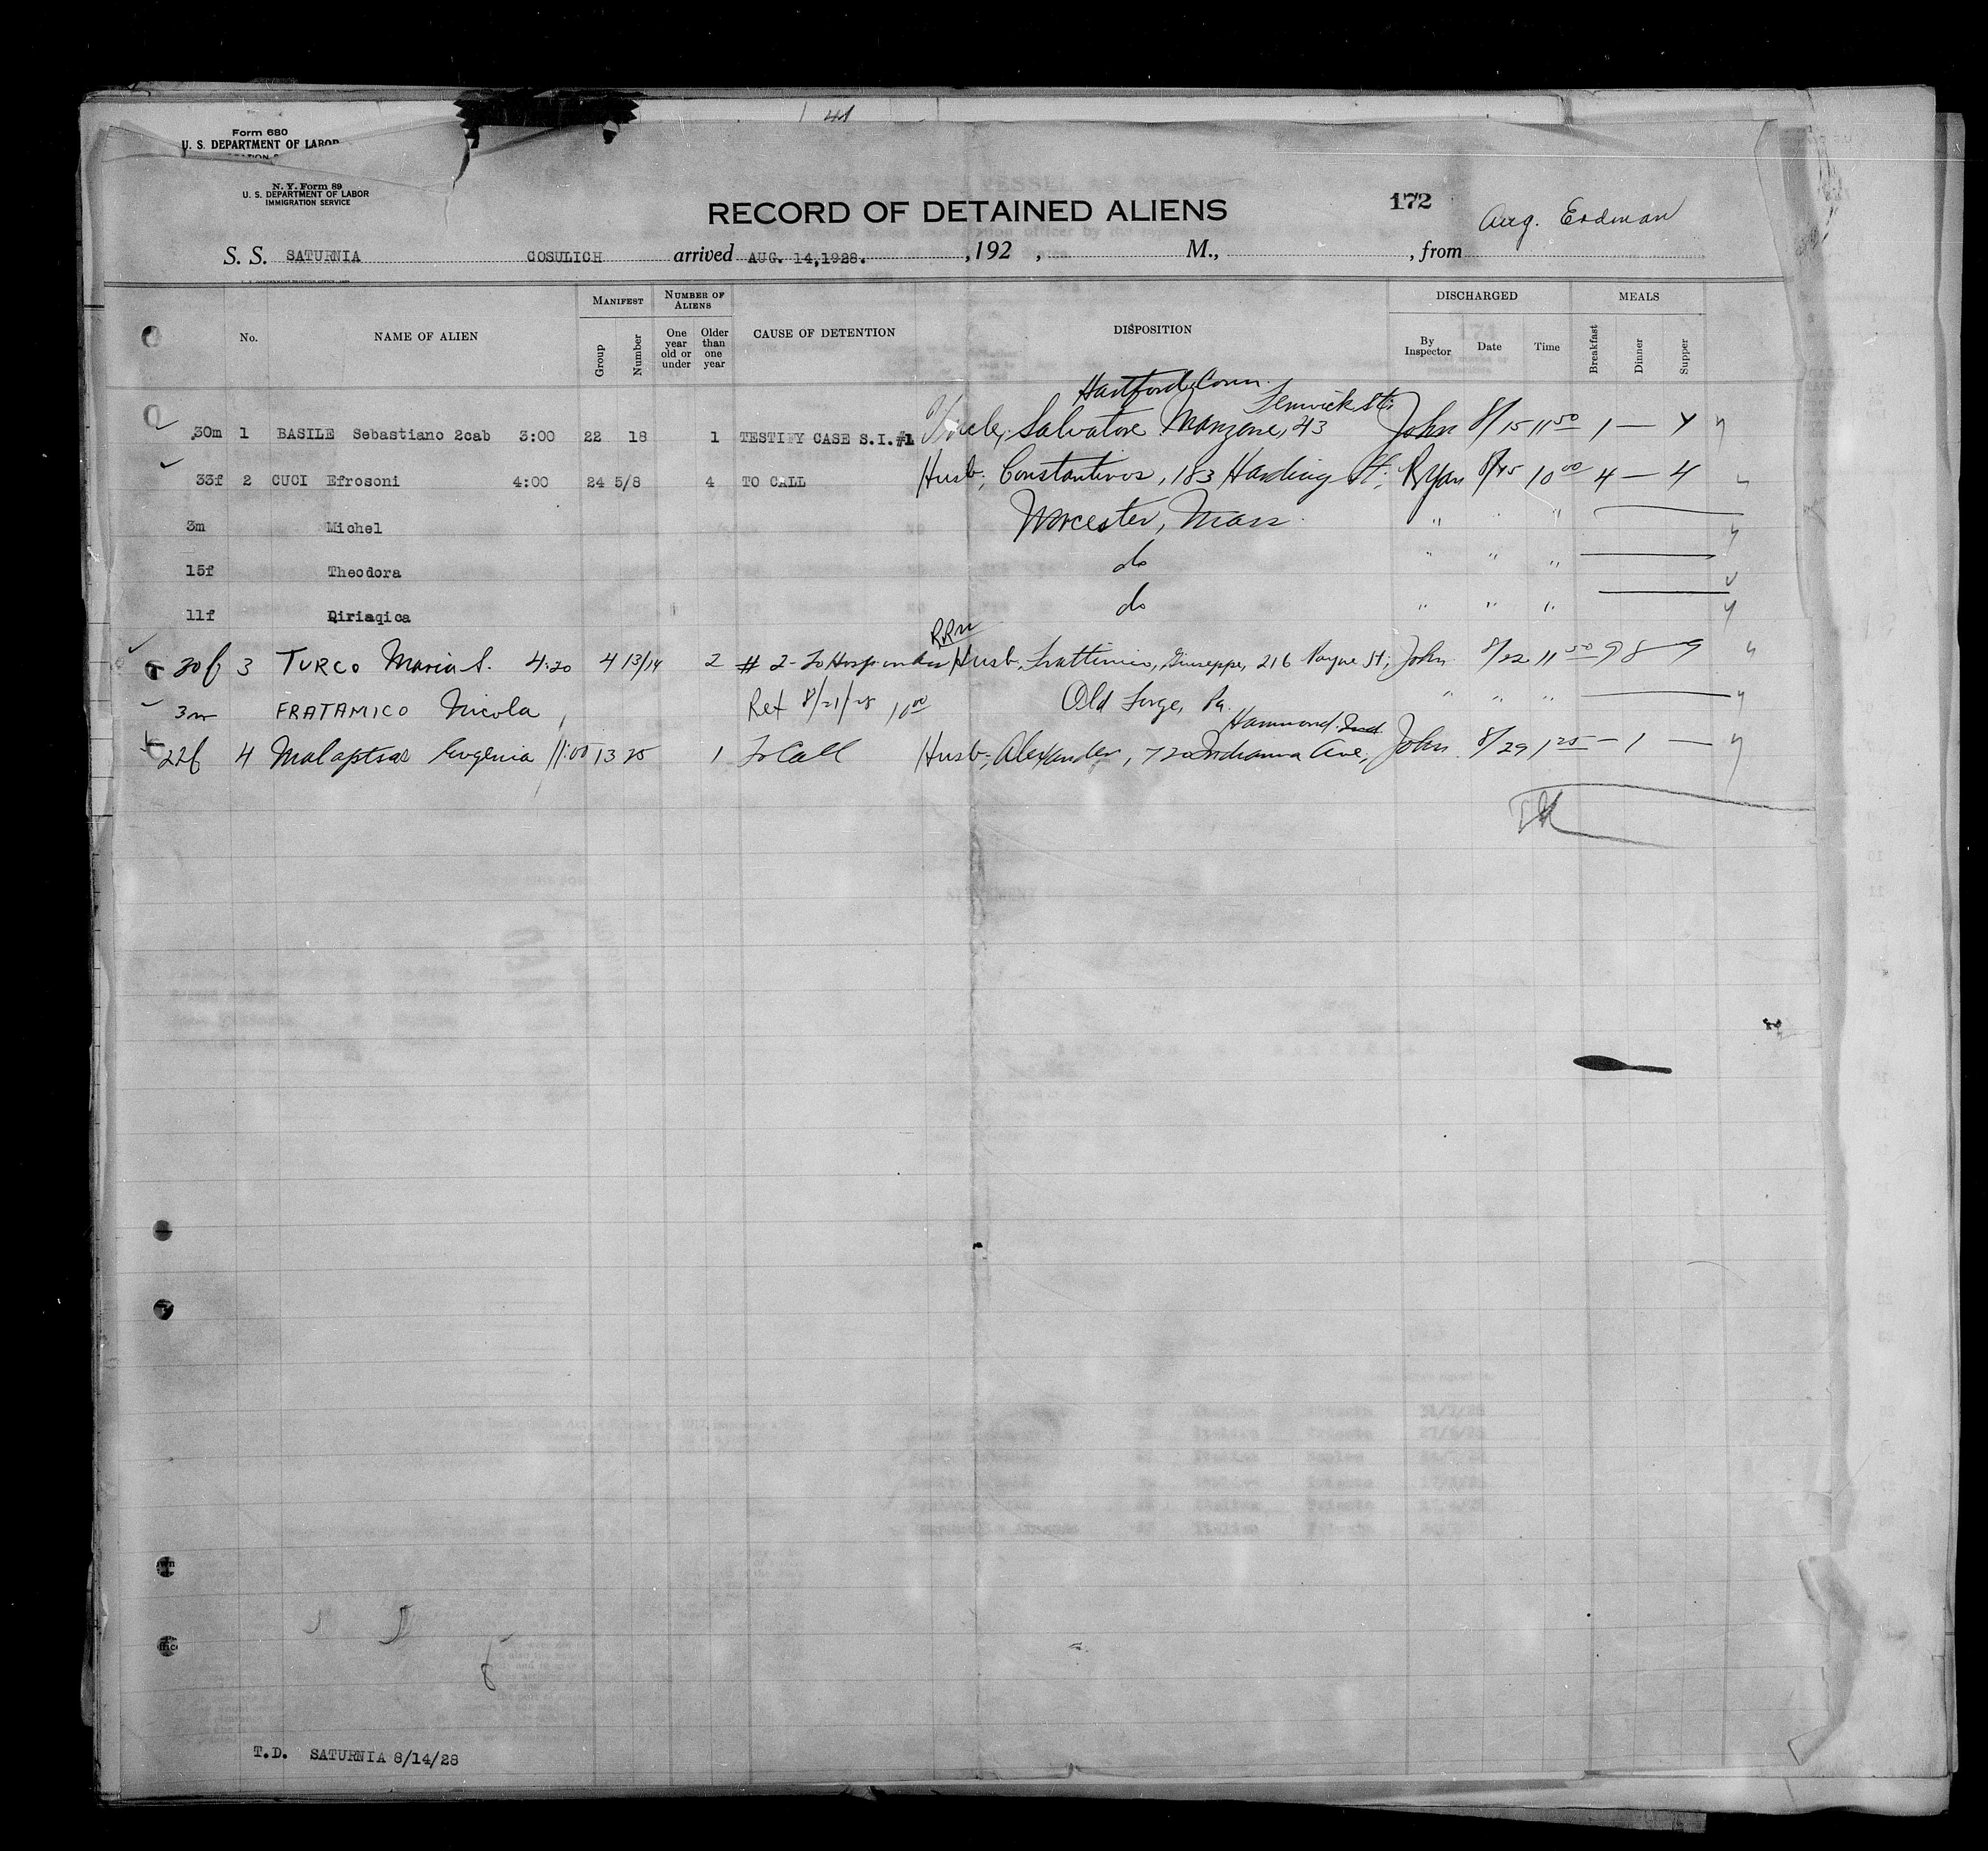 41
Form 680
U. S. DEPARTMENT OF LABOR
N. Y. Form 89
U. S. DEPARTMENT OF LABOR
IMMIGRATION SERVICE
RECORD OF DETAINED ALIENS
172
Aug. Erdman
S. S. SATURNIA COSULICH arrived AUG. 14,1928. , 192 , M., , from
MANIFEST NUMBER OF ALIENS DISCHARGED MEALS
No. NAME OF ALIEN Group Number One year old or under Older than one year CAUSE OF DETENTION DISPOSITION By Inspector Date Time Breakfast Dinner Supper
Hartford, Conn.
Fenwick St;
30m 1 BASILE Sebastiano 2cab 3:00 22 18 1 TESTIFY CASE S.I.#1 Uncle, Salvatore Manzone, 43 John 8/15 11 50 1 —
33f 2 CUCI Efrosoni 4:00 24 5/8 4 TO CALL Husb, Constantinos, 183 Harding St; Ryan 8/15 10 00 4 — 4
3m Michel Worcester, Mass. " "
15f Theodora do " " "
11f Qiriaqica do " " "
RRM
30f 3 TURCO Maria S. 4:20 4 13/14 2 # 2- To Hosp Husb, Giuseppe, 216 St; John 8/22 11 50 9 8 9
3m FRATAMICO Nicola Ret 8/21/28 10 00 Old Forge, Pa. " " "
Hammond Ind
22f 4 Eugenia 11:00 13 25 1 To Call Husb, Alexander, 720 Indiana Ave, John 8/29 1 25 — 1 —
T.D. SATURNIA 8/14/28